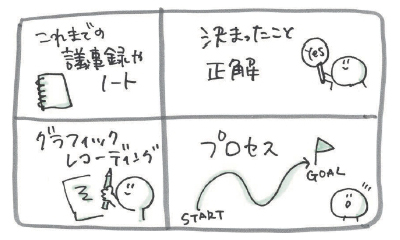 これまでの
議事録や
ノート
決まったこと
正解
Yes
グラフィック
レコーディング
プロセス
GOAL
START